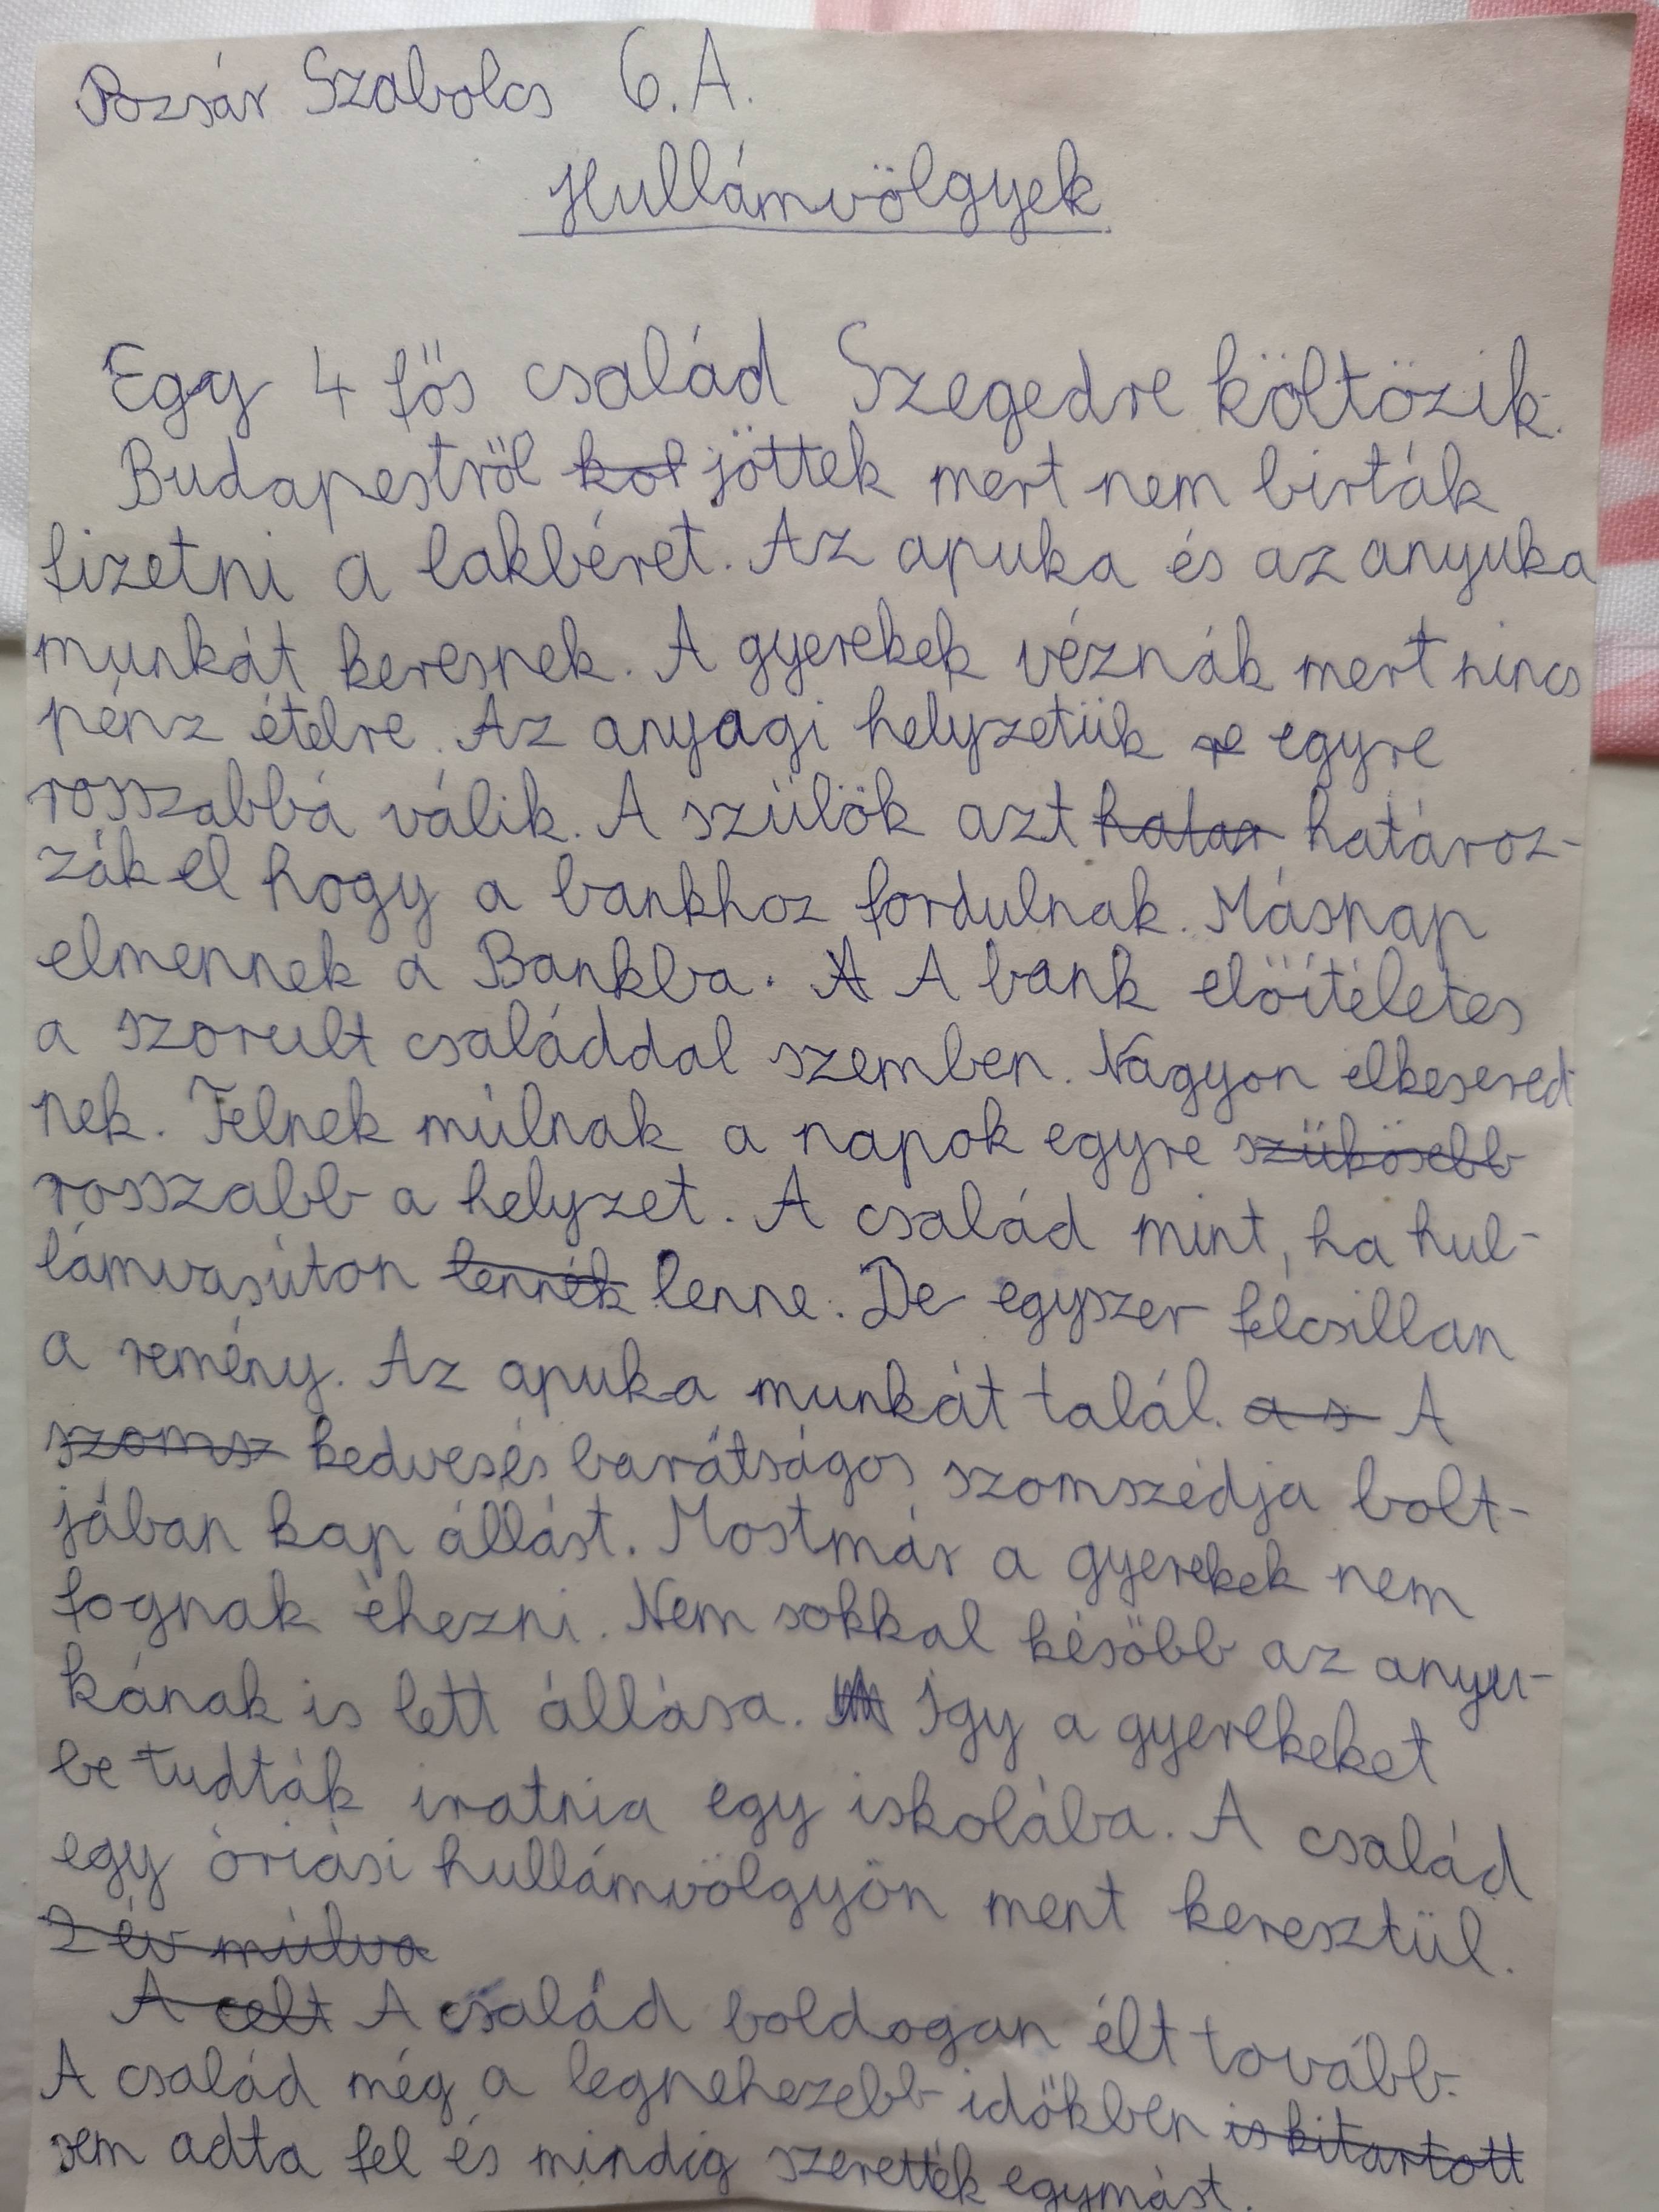 Pozsár Szabolcs 6.A.
Hullámvölgyek
Egy 4 fős család Szegedre költözik.
Budapestről kol jöttek mert nem birták
fizetni a lakbéret. Az apuka és az anyuka
munkát keresnek. A gyerekek véznák mert nincs
pénz ételre. Az anyagi helyzetük re egyre
rosszabbá válik. A szülök azt hatar határoz-
zák el hogy a bankhoz fordulnak. Másnap
elmennek a Bankba. A A bank elöítéletes
a szorult családdal szemben. Nagyon elkesered
nek. Telnek múlnak a napok egyre szükösebb
rosszabb a helyzet. A család mint, ha hul-
lámvasúton lennék lenne. De egyszer felcsillan
a remény. Az apuka munkát talál. a s A
szomsz kedves és barátságos szomszédja bolt-
jában kap állást. Mostmár a gyerekek nem
fognak éhezni. Nem sokkal késöbb az anyu-
kának is lett állása. Igy a gyerekeket
be tudták iratnia egy iskolába. A család
egy óriási hullámvölgyön ment keresztül.
2 év múlva
A celt A család boldogan élt tovább.
A család még a legnehezebb időkben is kitartott
sem adta fel és mindig szerették egymást.